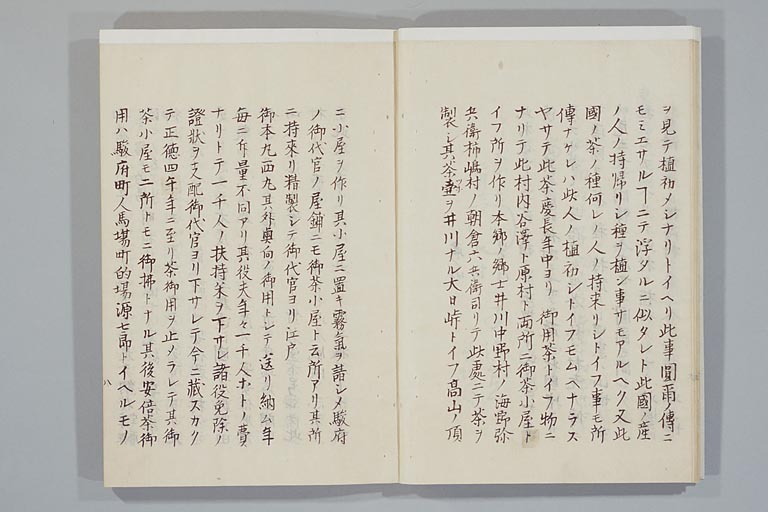 ヲ見テ植初メシナリトイヘリ此事圓爾ノ傳ニ
モミエサルヿニテ浮タルニ似タレト此國ノ産
ノ人ノ持帰リシ種ヲ植シ事サモアルヘク又此
國ノ茶ノ種何レノ人ノ持来リシトイフ事モ所
傳ナケレハ此人ノ植初シトイフモムヘナラス
ヤサテ此茶慶長年中ヨリ御用茶トイフ物ニ
ナリテ此村内谷澤ト原村ト両所ニ御茶小屋ト
イフ所ヲ作リ本郷ノ郷士井川中野村ノ海野弥
兵衛柿嶋村ノ朝倉六兵衛司リテ此處ニテ茶ヲ
製シ其茶壷ヲ井川ナル大日峠トイフ高山ノ頂
ニ小屋ヲ作リ其小屋ニ置キ霧氣ヲ詰シメ駿府
ノ御代官ノ屋鋪ニモ御茶小屋ト云所アリ其所
ニ持来リ精製シテ御代官ヨリ江戸
御本丸西丸其外奥向ノ御用トシテ送リ納ム年
毎ニ斤量不同アリ其役夫年々一千人ホトノ費
ナリトテ一千人ノ扶持米ヲ下サレ諸役免除ノ
證状ヲ支配御代官ヨリ下サレテ今ニ藏スカク
テ正徳四午年ニ至リ茶御用ヲ止メラレテ其御
茶小屋モ二所トモニ御拂トナル其後安倍茶御
用ハ駿府町人馬場町的場源七郎トイヘルモノ
八